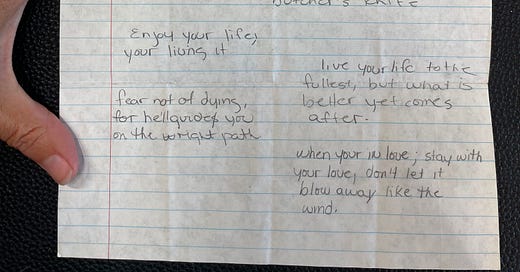 butcher's knife
Enjoy your life,
your living it
fear not of dying,
for hellguides you
on the wright path
live your life to the
fullest, but what is
better yet comes
after.
when your in love; stay with
your love, don't let it
blow away like the
wind.